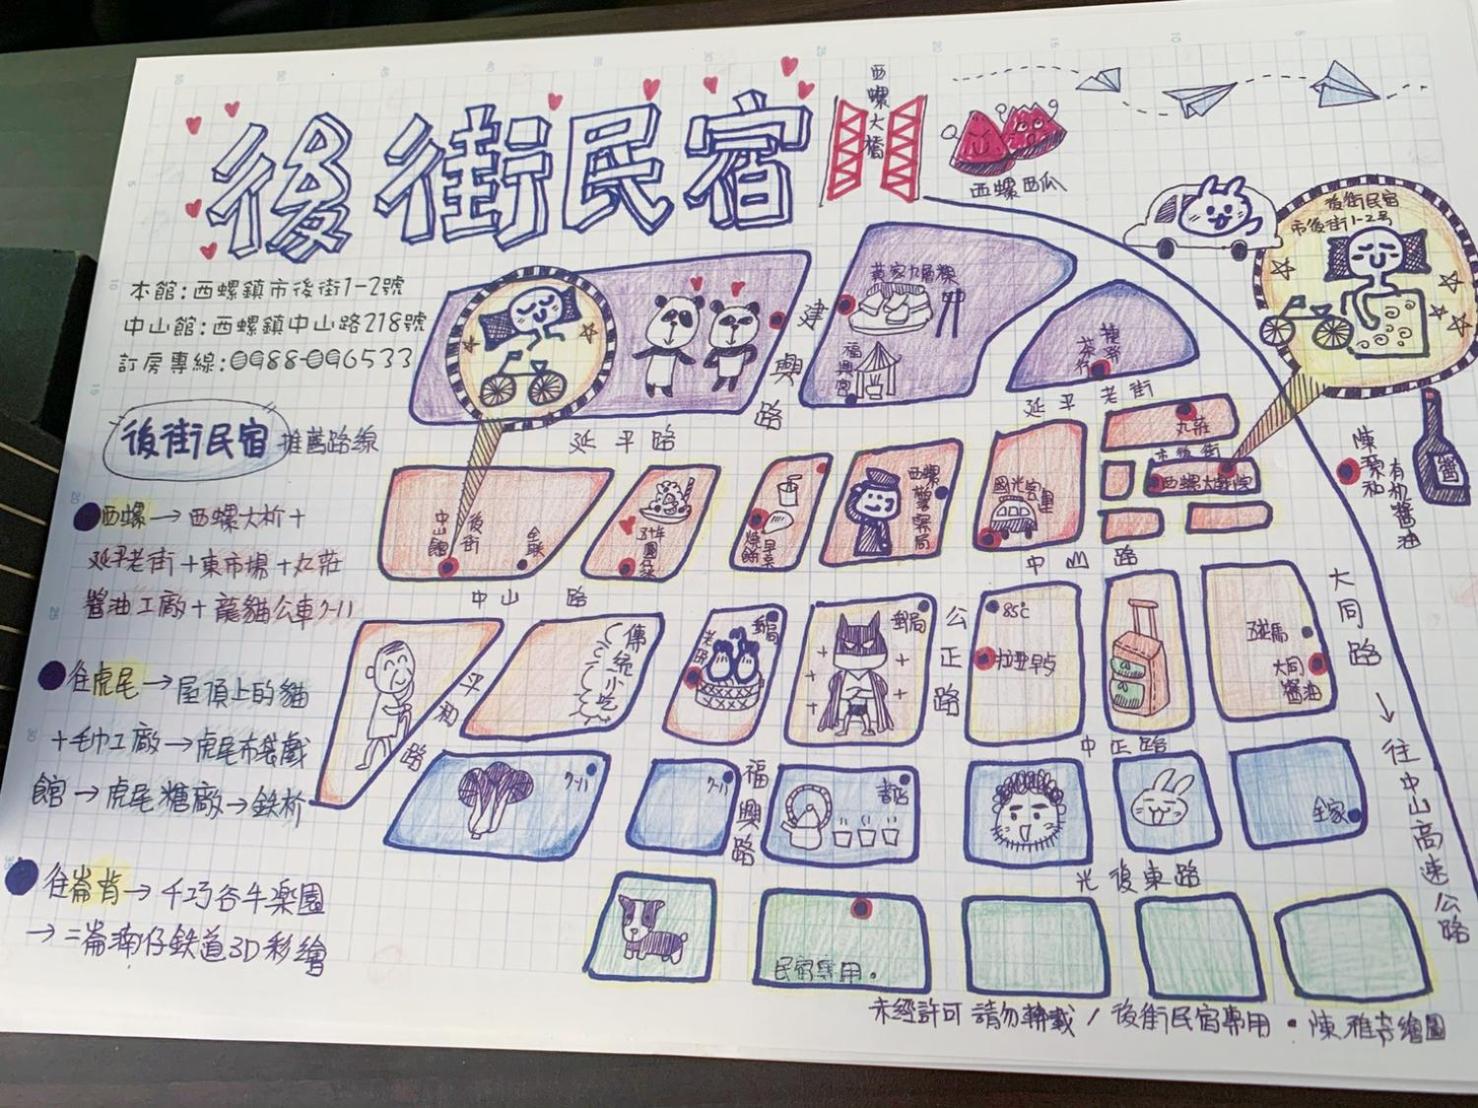 後街民宿
本館:西螺鎮市後街1-2號
中山館:西螺鎮中山路218號
訂房專線:0988-096533
後街民宿 推薦路線
西螺→西螺大桥+
延平老街+東市場+丸莊
醬油工廠+龍貓公車7-11
往虎尾→屋頂上的貓
+毛巾工廠→虎尾布袋戲
館→虎尾糖廠→鉄桥
往崙背→千巧谷牛樂園
→二崙湳仔鉄道3D彩繪
西螺大橋
西螺西瓜
後街民宿
市後街1-2号
建興路
黃家九層粿
福興宮
捷發
茶行
延平老街
延平路
丸莊
市後街
西螺大戲院
陳源和
有机醬油
醬
中山館
後街
全聯
燒餅
早点
西螺
警察局
國光客運
中山路
中山路
大同路
→往中山高速公路
平和路
傳統小吃
郵局
郵局
公正路
85℃
拉亞早点
大同
醬油
中正路
7-11
7-11
福興路
書店
全家
光復東路
民宿專用。
未經許可請勿轉載/後街民宿專用・陳雅奇繪圖